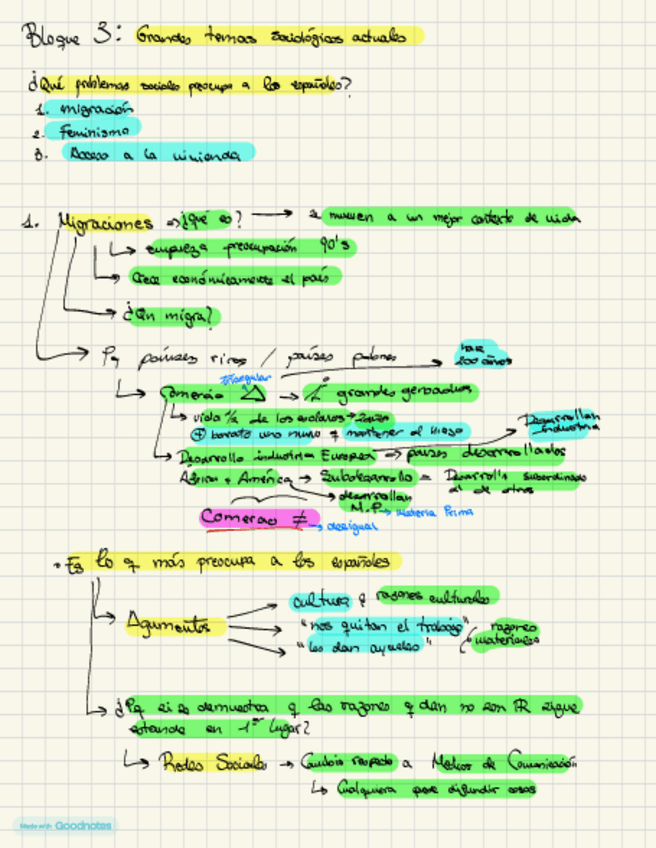 Bloque 3: Grandes temas sociológicos actuales
¿Qué problemas sociales preocupa a los españoles?
1. migración
2. Feminismo
3. Acceso a la vivienda
1. Migraciones → ¿qué es? → se mueven a un mejor contexto de vida
↳ empieza preocupación 90's
Crece económicamente el país
¿Qn migra?
Pq países ricos / países pobres → hace 200 años
Triangular
↳ Comercio △ → grandes
↳ vida ½ de los esclavos →
⊕ barato uno nuevo q mantener al
Desarrollan Industria
Desarrollo industria Europea → países desarrollados
África + América → Subdesarrollo = Desarrollo subordinado
al de otros
desarrollan
M.P → Materia Prima
Comercio ≠ → desigual
• Es lo q más preocupa a los españoles
Agumentos
cultura q razones culturales
"nos quitan el trabajo" razones
"les dan ayudas" materiales
¿Pq si se demuestra q las razones q dan no son R sigue
estando en 1er lugar?
↳ Redes Sociales → Cambio respecto a Medios de Comunicación
↳ Cualquiera pue difundir cosas
Made with Goodnotes